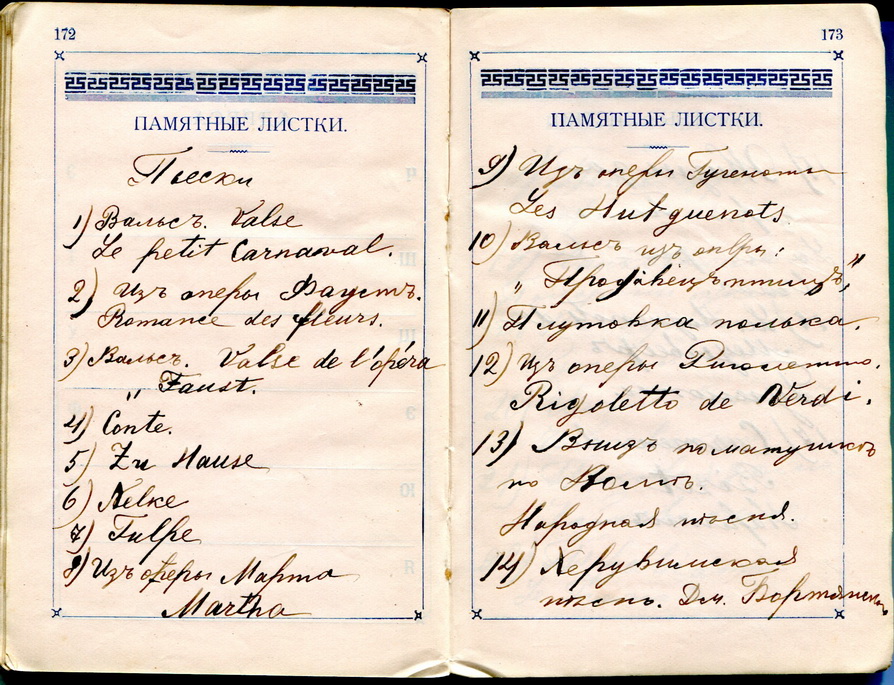 172
ПАМЯТНЫЕ ЛИСТКИ.
Пьески
1) Вальсъ. Valse
Le petit Carnaval.
2) Изъ оперы Фаустъ.
Romance des fleurs.
3) Вальсъ. Valse de l'opéra
„ Faust.
4) Conte.
5) Zu Hause
6) Nelke
7) Tulpe
8) Изъ оперы Марта
Martha
173
ПАМЯТНЫЕ ЛИСТКИ.
9) Изъ оперы Гугеноты
Les Hutguenots
10) Вальсъ изъ опры:
„ Продавецъ птицъ,"
11) Плутовка полька.
12) Изъ оперы Риголетто.
Rigoletto de Verdi.
13) Внизъ по матушкѣ
по Волгѣ.
Народная пѣсня.
14) Херувимская
пѣснь. Дм. Бортянскаго